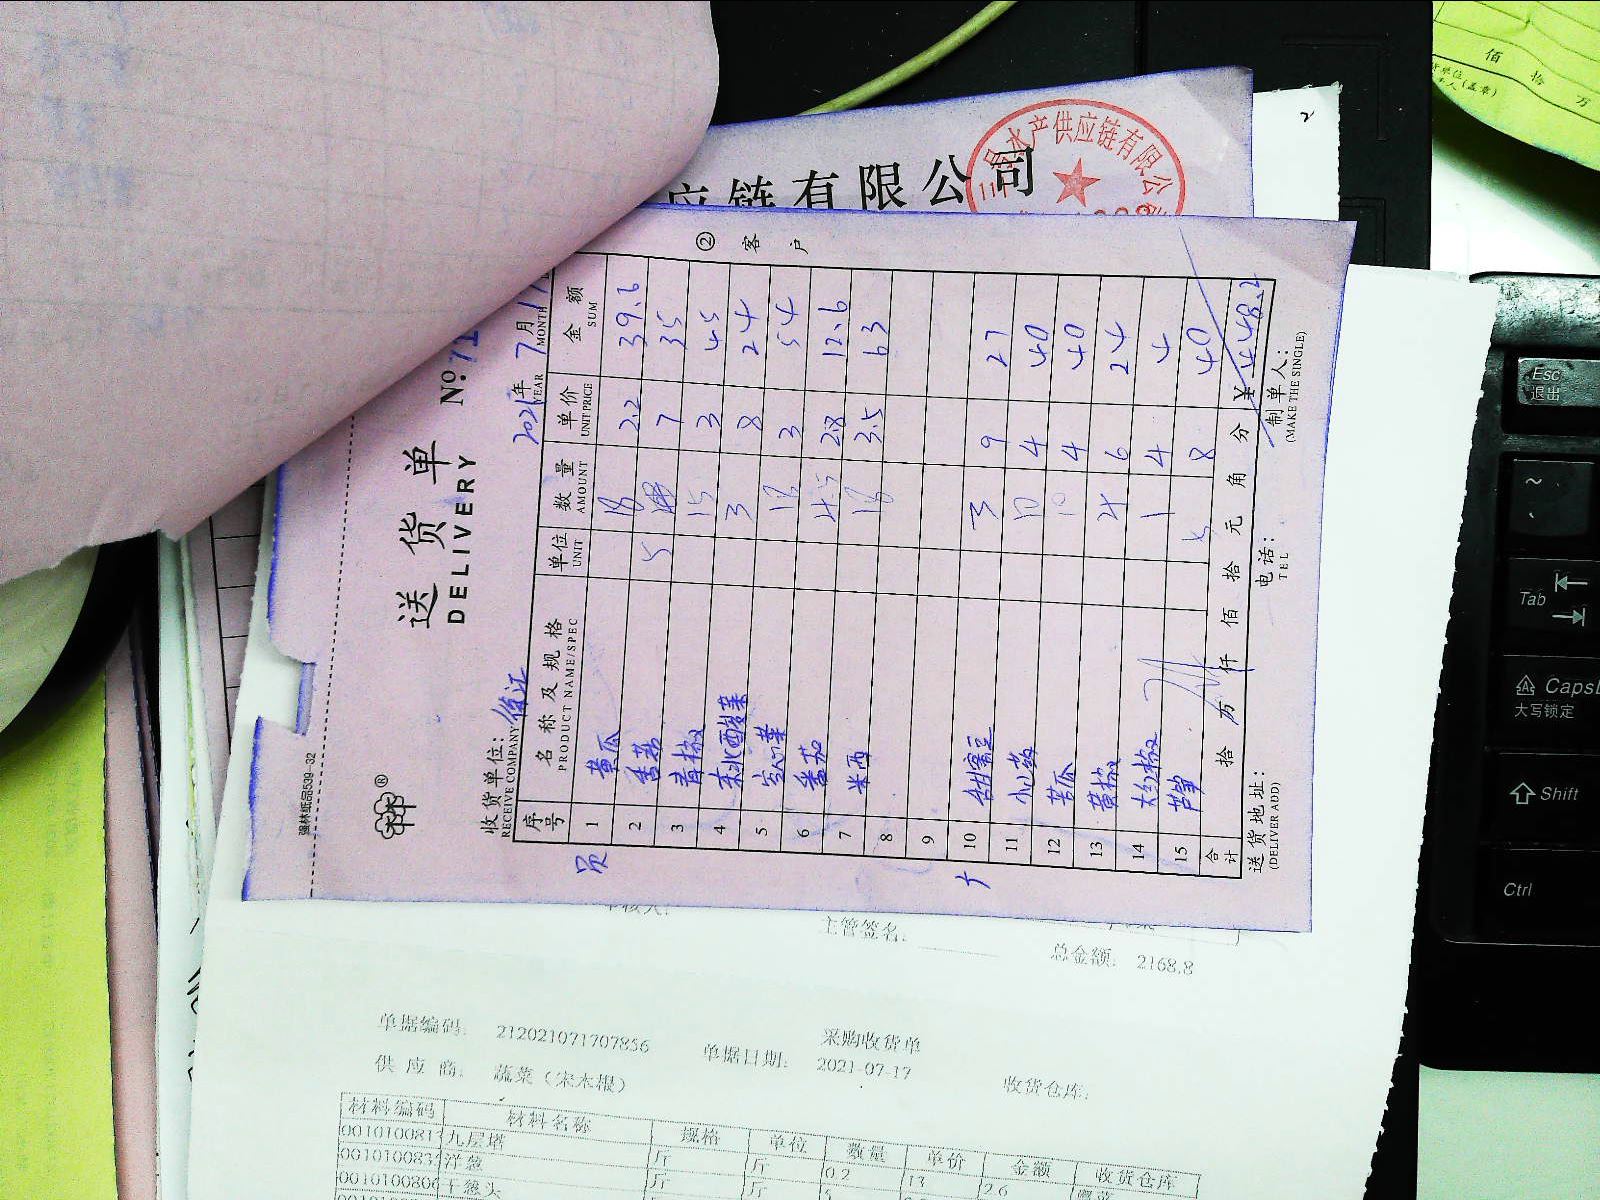 佰 拾 万
应链有限公司
三 水产供应链有限公司
② 客户
强林纸品539-32
送货单
DELIVERY
№:71
2021年 7月17
YEAR MONTH
收货单位:
RECEIVE COMPANY
序号 名称及规格 单位 数量 单价 金额
PRODUCT NAME/SPEC UNIT AMOUNT UNIT PRICE SUM
1 黄瓜 18 2.2 39.6
2 香茜 5 7 35
3 青椒 15 3 45
4 东北酸菜 3 8 24
5 空心菜 18 3 54
6 番茄 4.5 2.8 12.6
7 米西 18 3.5 63
8
9
10 甜蜜豆 3 9 27
11 小葱 10 4 40
12 苦瓜 10 4 40
13 黄椒 4 6 24
14 大红椒 1 4 4
15 芦笋 5 8 40
合计 拾 万 仟 佰 拾 元 角 分 ¥448.2
送货地址: 电话: 制单人:
(DELIVER ADD) TEL (MAKE THE SINGLE)
主管签名:
总金额: 2168.8
采购收货单
单据编码: 212021071707856 单据日期: 2021-07-17 收货仓库:
供应商: 蔬菜(宋木根)
材料编码 材料名称 规格 单位 数量 单价 金额 收货仓库
九层塔 斤 斤 0.2 13 2.6
洋葱 斤 斤 5
干葱头
Esc
退出
Tab
Caps
大写锁定
Shift
Ctrl